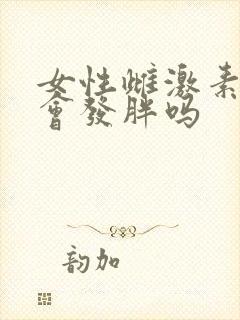 女性雌激素
會發胖吗
韵加